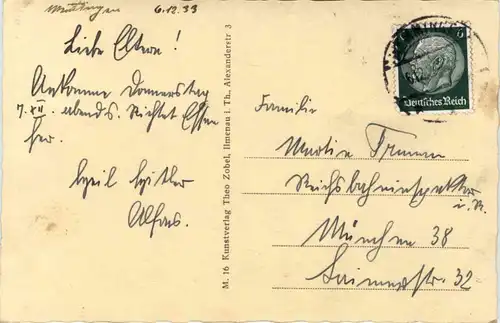 Meiningen 6.12.33
Liebe Eltern!
Ankomme Donnerstag
7. XII. abends. Richtet Essen
her.
Heil Hitler
Alfons.
M. 16 Kunstverlag Theo Zobel, Ilmenau i. Th., Alexanderstr 3
6
Deutsches Reich
Familie
Martin
Reichsbahninspektor
i. R.
München 38
str. 32